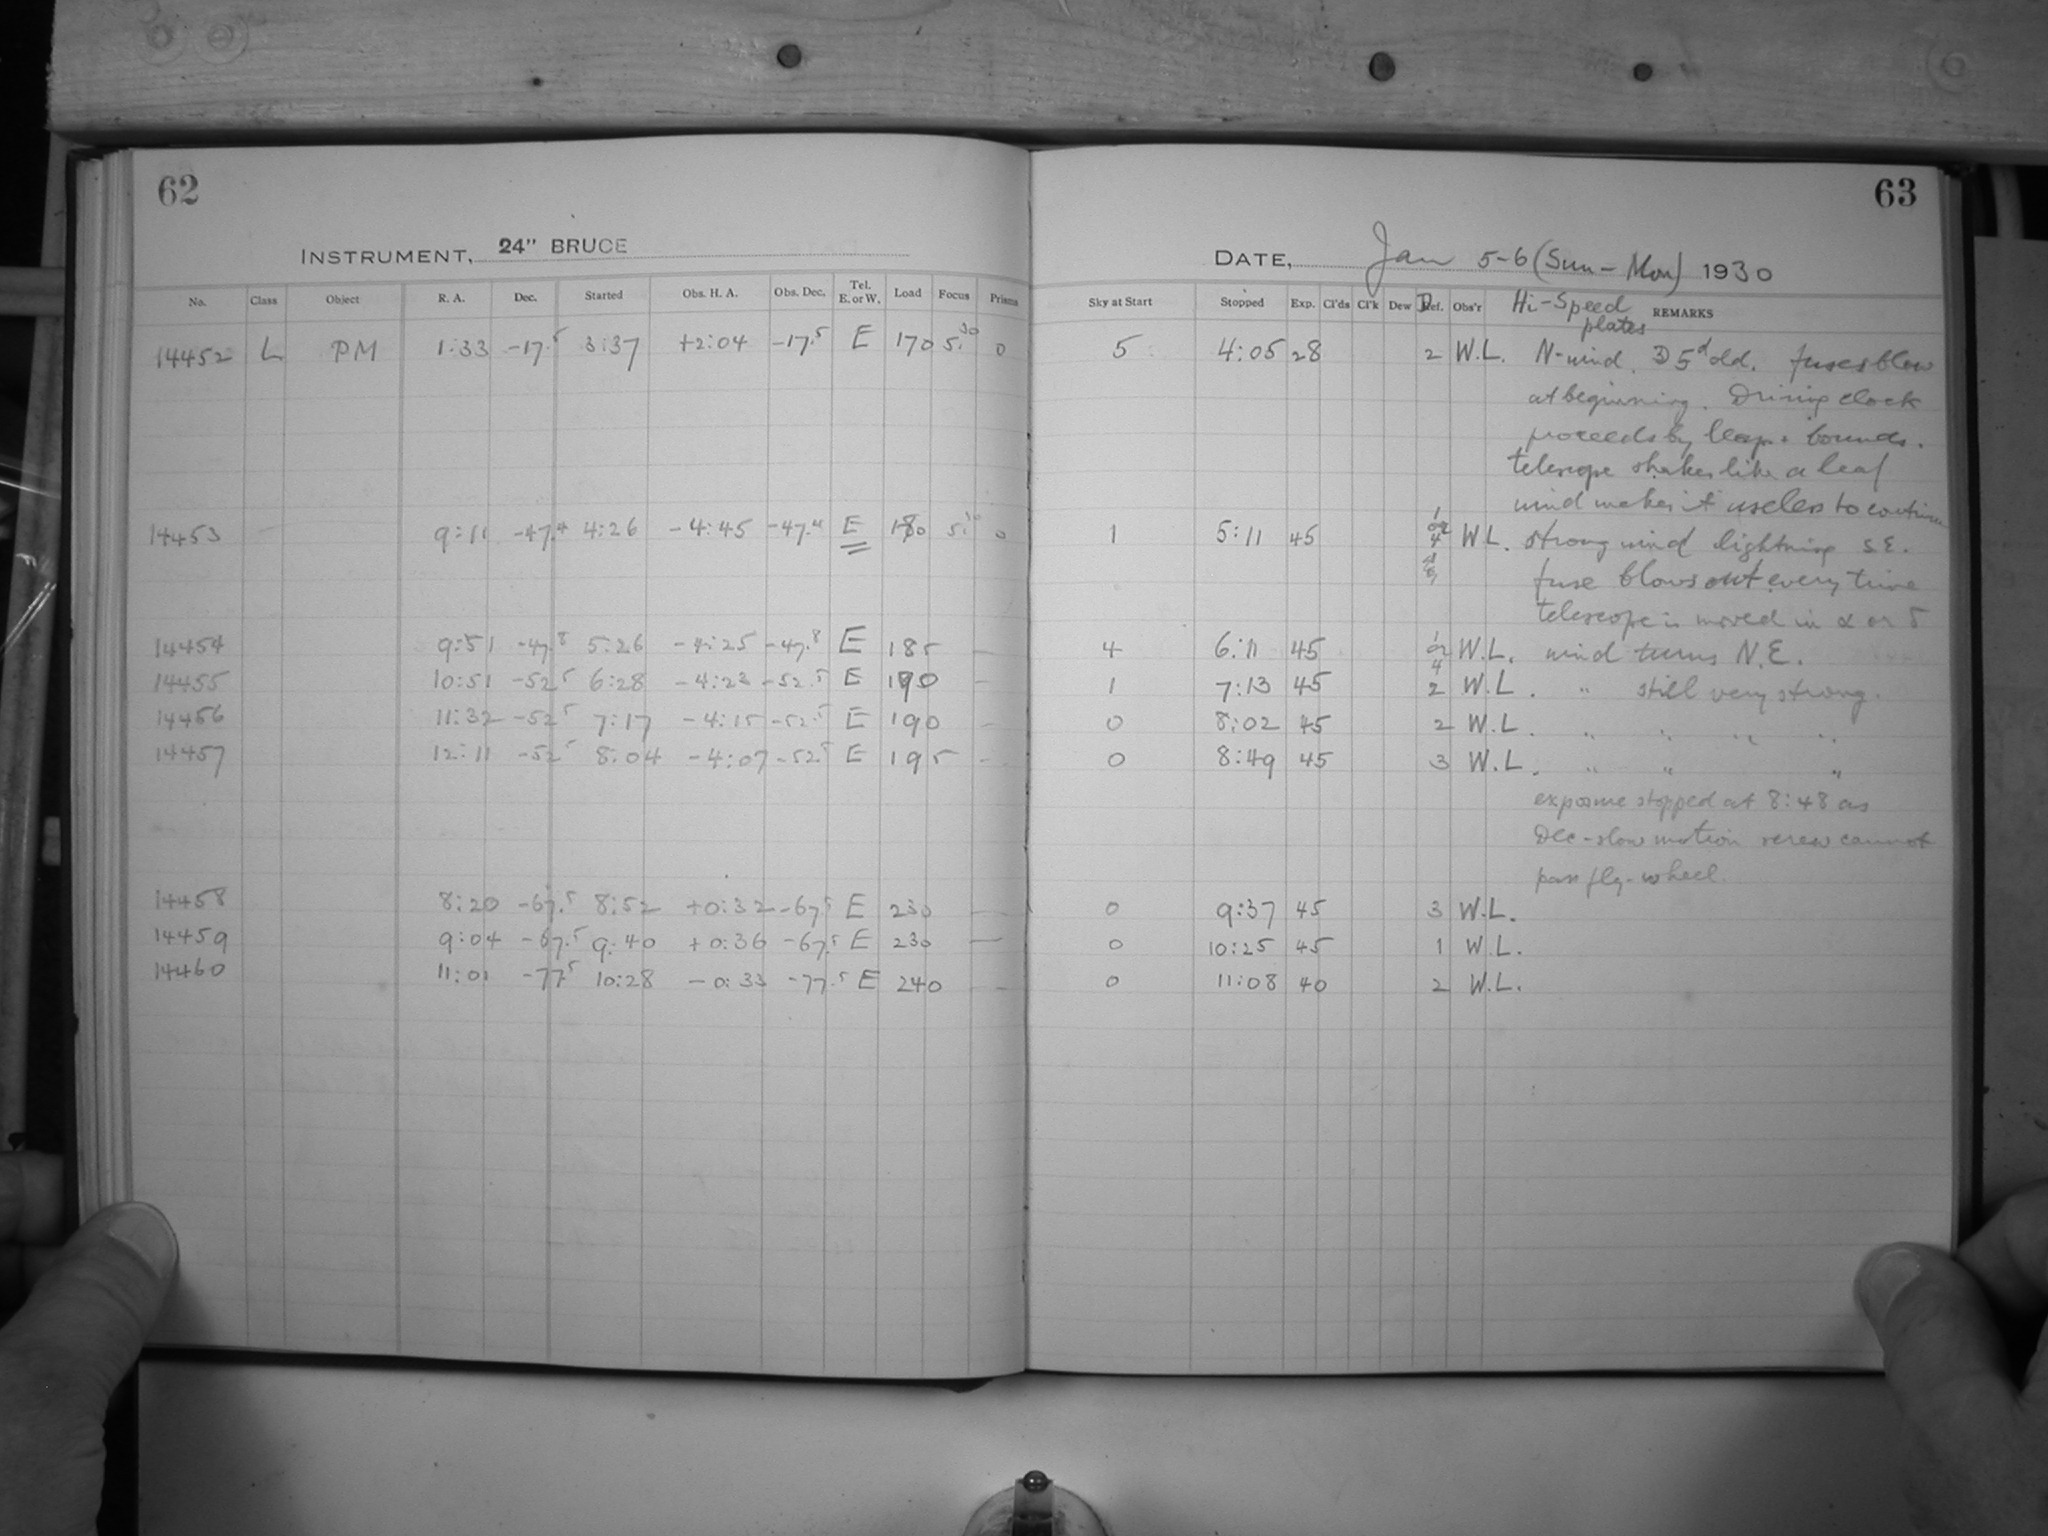 62
INSTRUMENT, 24" BRUCE
No. Class Object R. A. Dec. Started Obs. H. A. Obs. Dec. Tel. E. or W. Load Focus Prisms
14452 L PM 1:33 -17.5 3:37 +2:04 -17.5 E 170 5.30 0
14453 9:11 -47.4 4:26 -4:45 -47.4 E 180 5.30 0
14454 9:51 -47.8 5:26 -4:25 -47.8 E 185 —
14455 10:51 -52.5 6:28 -4:23 -52.5 E 190 —
14456 11:32 -52.5 7:17 -4:15 -52.5 E 190 —
14457 12:11 -52.5 8:04 -4:07 -52.5 E 195 —
14458 8:20 -67.5 8:52 +0:32 -67.5 E 230 —
14459 9:04 -67.5 9:40 +0:36 -67.5 E 230 —
14460 11:01 -77.5 10:28 -0:33 -77.5 E 240 —
63
DATE, Jan 5-6 (Sun-Mon) 1930
Sky at Start Stopped Exp. Cl'ds Cl'k Dew Def. Obs'r Hi-Speed plates REMARKS
5 4:05 28 2 W.L. N-wind. 5d old. fuses blow
at beginning. Driving clock
proceeds by leaps + bounds.
telescope shakes like a leaf
wind makes it useless to continue
1 5:11 45 1 or 4 W L. strong wind lightning S.E.
fuse blows out every time
telescope is moved in α or δ
4 6:11 45 1 or 4 W.L. wind turns N.E.
1 7:13 45 2 W.L. " still very strong.
0 8:02 45 2 W.L. " " " "
0 8:49 45 3 W.L. " " "
exposure stopped at 8:48 as
Dec-slow motion screw cannot
pass fly-wheel.
0 9:37 45 3 W.L.
0 10:25 45 1 W.L.
0 11:08 40 2 W.L.